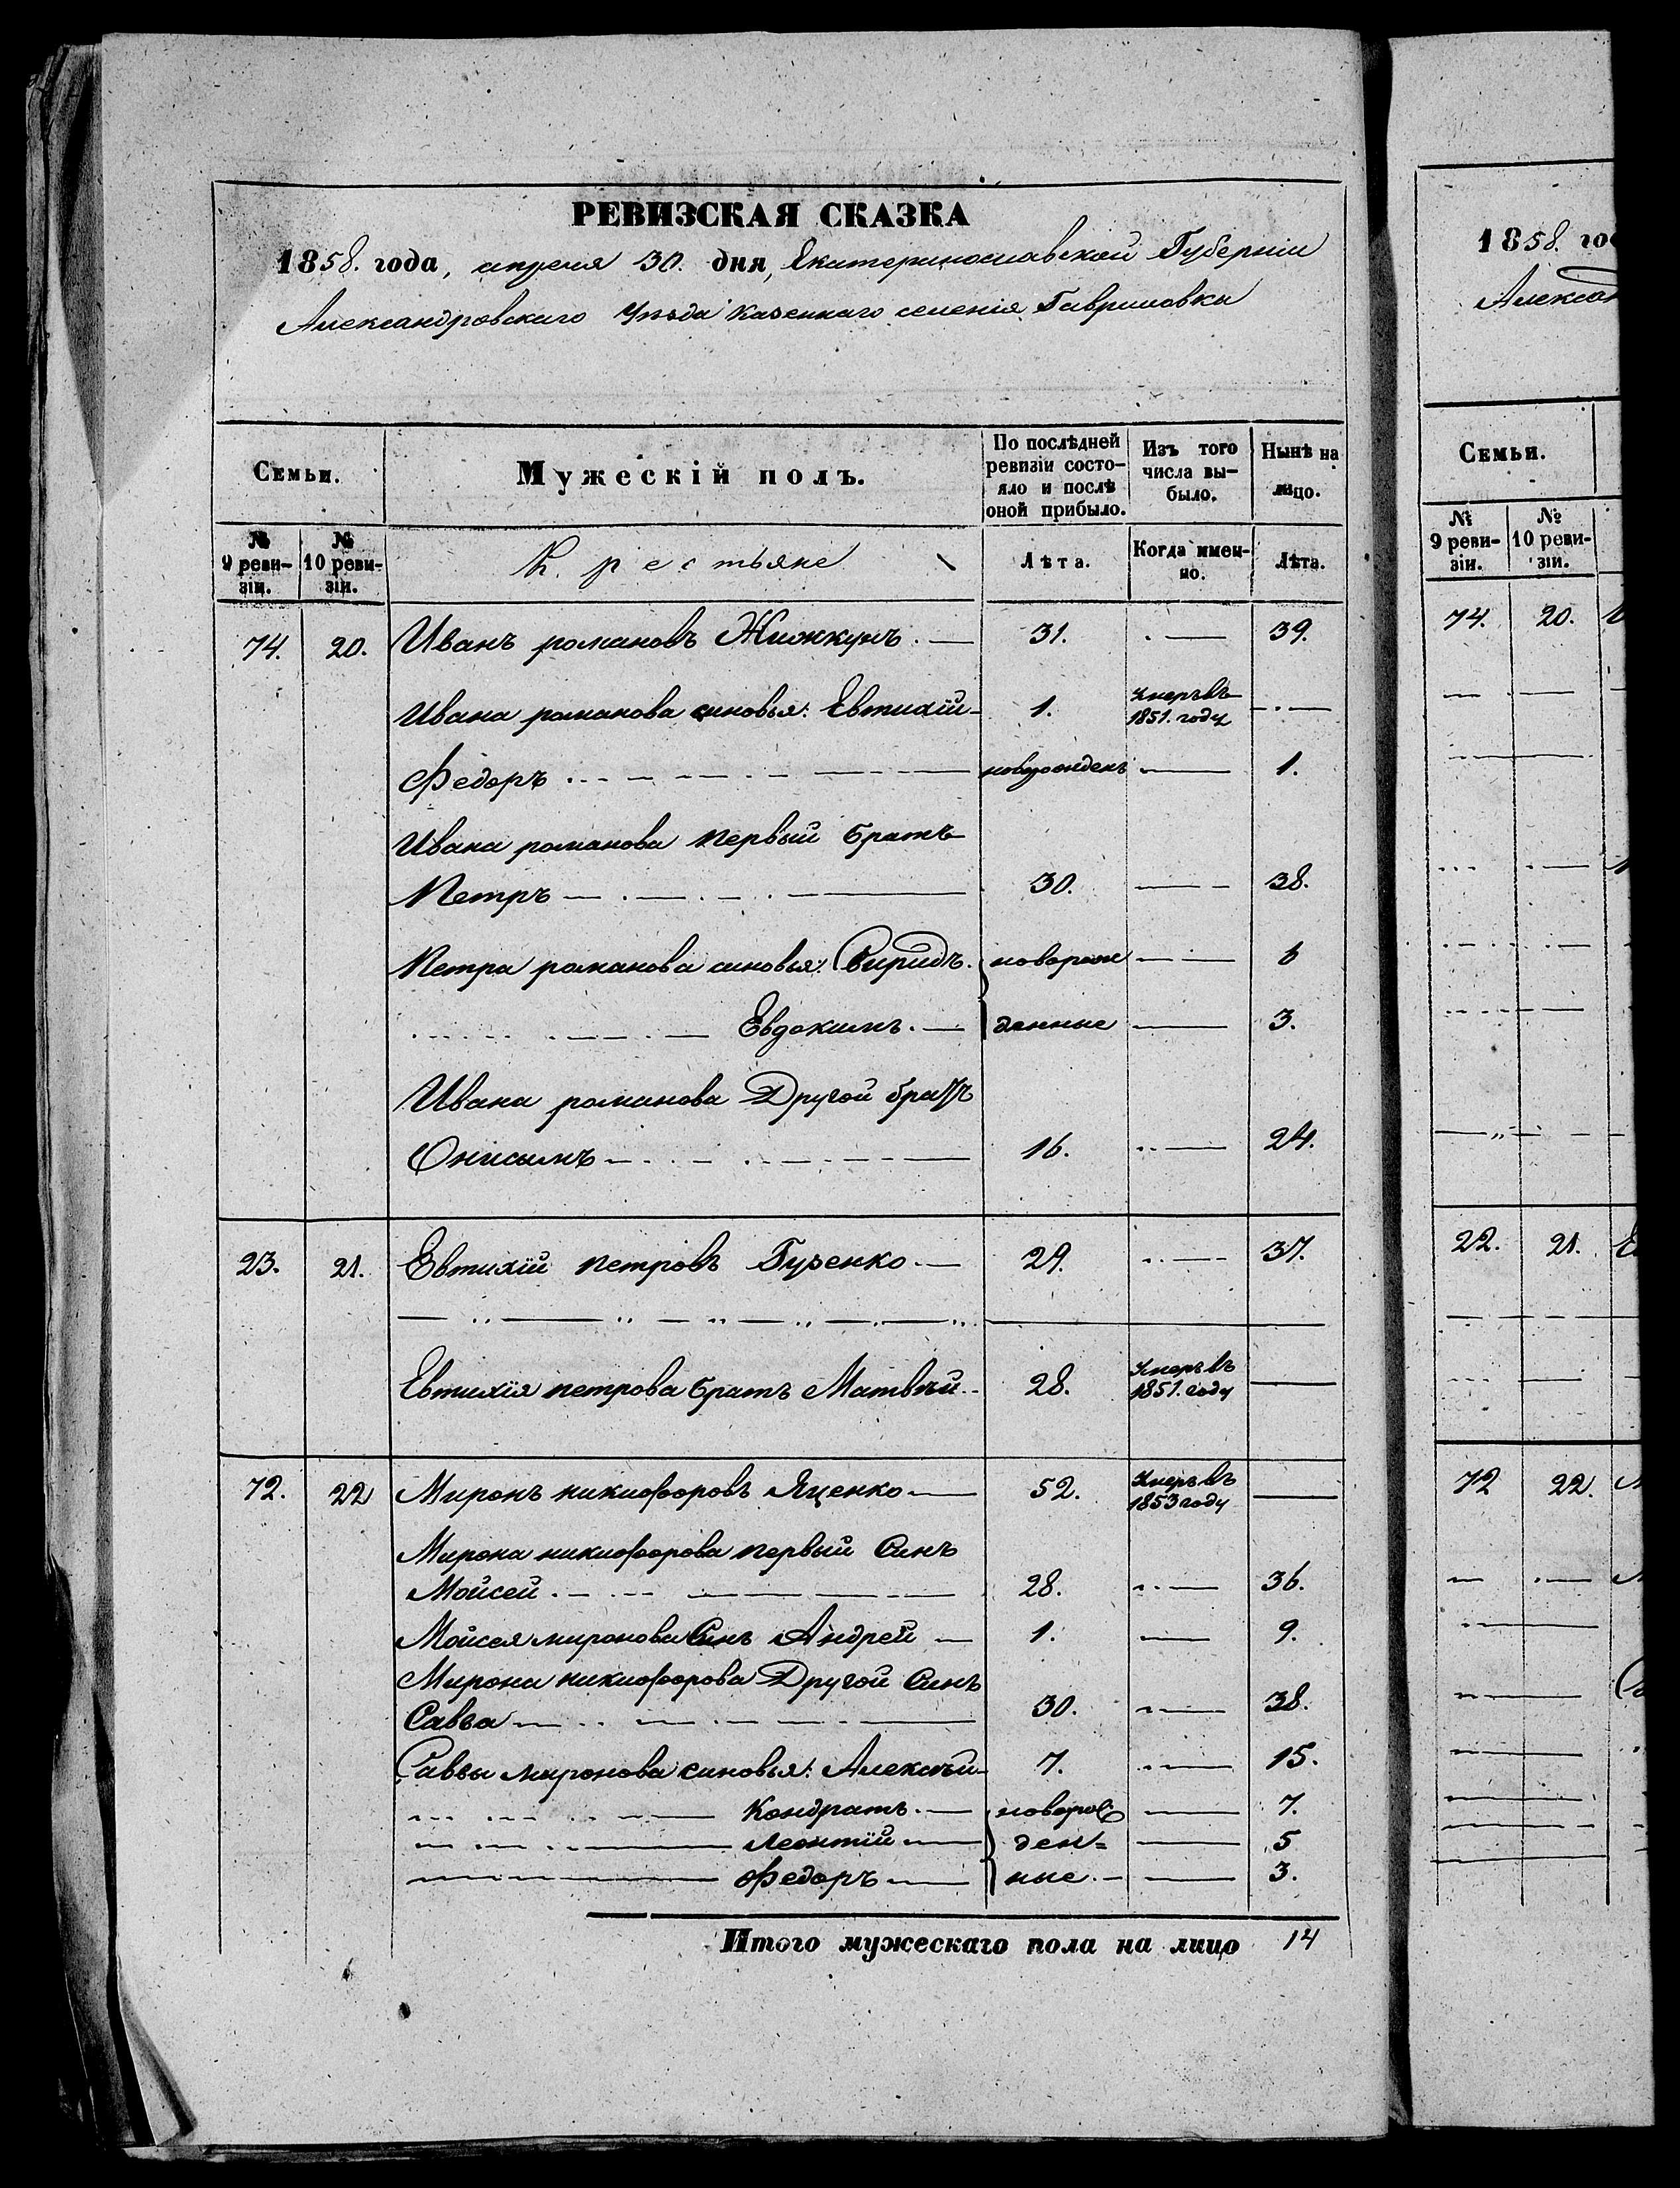 РЕВИЗСКАЯ СКАЗКА
1858. года, апреля 30. дня, Екатеринославской Губернии
Александровскаго Уѣзда казеннаго селенія Гавриловки
Семьи.
Мужескій полъ.
По послѣдней ревизіи состо-
яло и послѣ
оной прибыло.
Изъ того
числа вы-
было.
Нынѣ на
лицо.
№
9 реви-
зіи.
№
10 реви-
зіи.
Крестьяне
Лѣта.
Когда имен-
но.
Лѣта.
74. 20. Иванъ романовъ 31. 39.
Ивана романова синовья: Евтихій 1. Умеръ въ 1851. году
Федоръ новорожденъ 1.
Ивана романова первый братъ
Петръ 30. 38.
Петра романова синовья: Свиридъ. новорож 6
Евдокимъ. денные 3.
Ивана романова Другой братъ
Онисимъ 16. 24.
23. 21. Евтихій петровъ Гузенко 29. 37.
Евтихія петрова братъ Матвѣй 28. Умеръ въ 1851. году
72. 22 Миронъ никифоровъ Яценко 52. Умеръ въ 1853 году
Мирона никифорова первый Синъ
Мойсей 28. 36.
Мойсея миронова Синъ Андрей 1. 9.
Мирона никифорова Другой Синъ
Савва 30. 38.
Саввы миронова синовья: Алексѣй 7. 15.
Кондратъ. новорож 7.
Леонтій ден= 5
Федоръ ные. 3.
Итого мужескаго пола на лицо 14
1858. го
Александ
Семьи.
№
9 реви-
зіи.
№
10 реви-
зіи.
74. 20.
22. 21.
72 22.